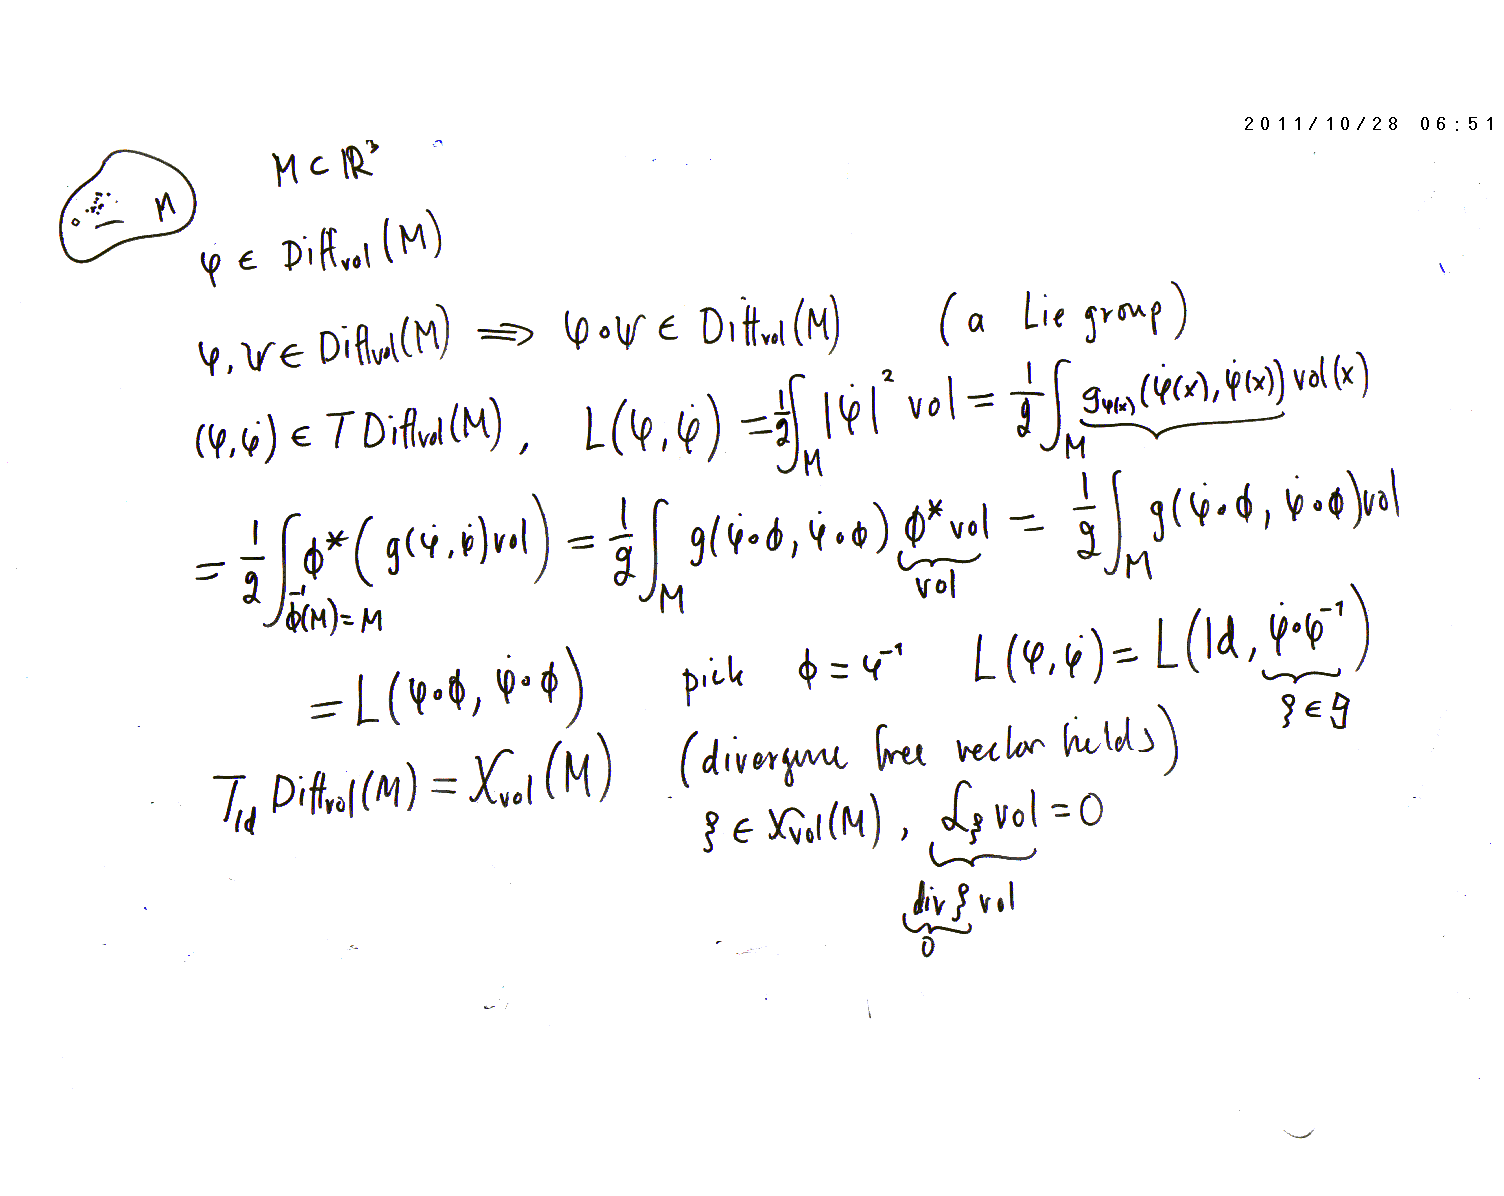 2011/10/28 06:51
M ⊂ ℝ³
M
φ ∈ Diffvol(M)
φ, ψ ∈ Diffvol(M) ⟹ φ∘ψ ∈ Diffvol(M) (a Lie group)
(φ, φ̇) ∈ T Diffvol(M), L(φ, φ̇) = ½∫_M |φ̇|² vol = ½∫_M g_φ(x)(φ̇(x), φ̇(x)) vol(x)
= ½∫_{ϕ⁻¹(M)=M} ϕ*(g(φ̇, φ̇)vol) = ½∫_M g(φ̇∘ϕ, φ̇∘ϕ) ϕ*vol = ½∫_M g(φ̇∘ϕ, φ̇∘ϕ)vol
vol
= L(φ∘ϕ, φ̇∘ϕ) pick ϕ = φ⁻¹ L(φ, φ̇) = L(Id, φ̇∘φ⁻¹)
ξ ∈ 𝔤
T_Id Diffvol(M) = 𝔛vol(M) (divergence free vector fields)
ξ ∈ 𝔛vol(M), ℒ_ξ vol = 0
div ξ vol
0